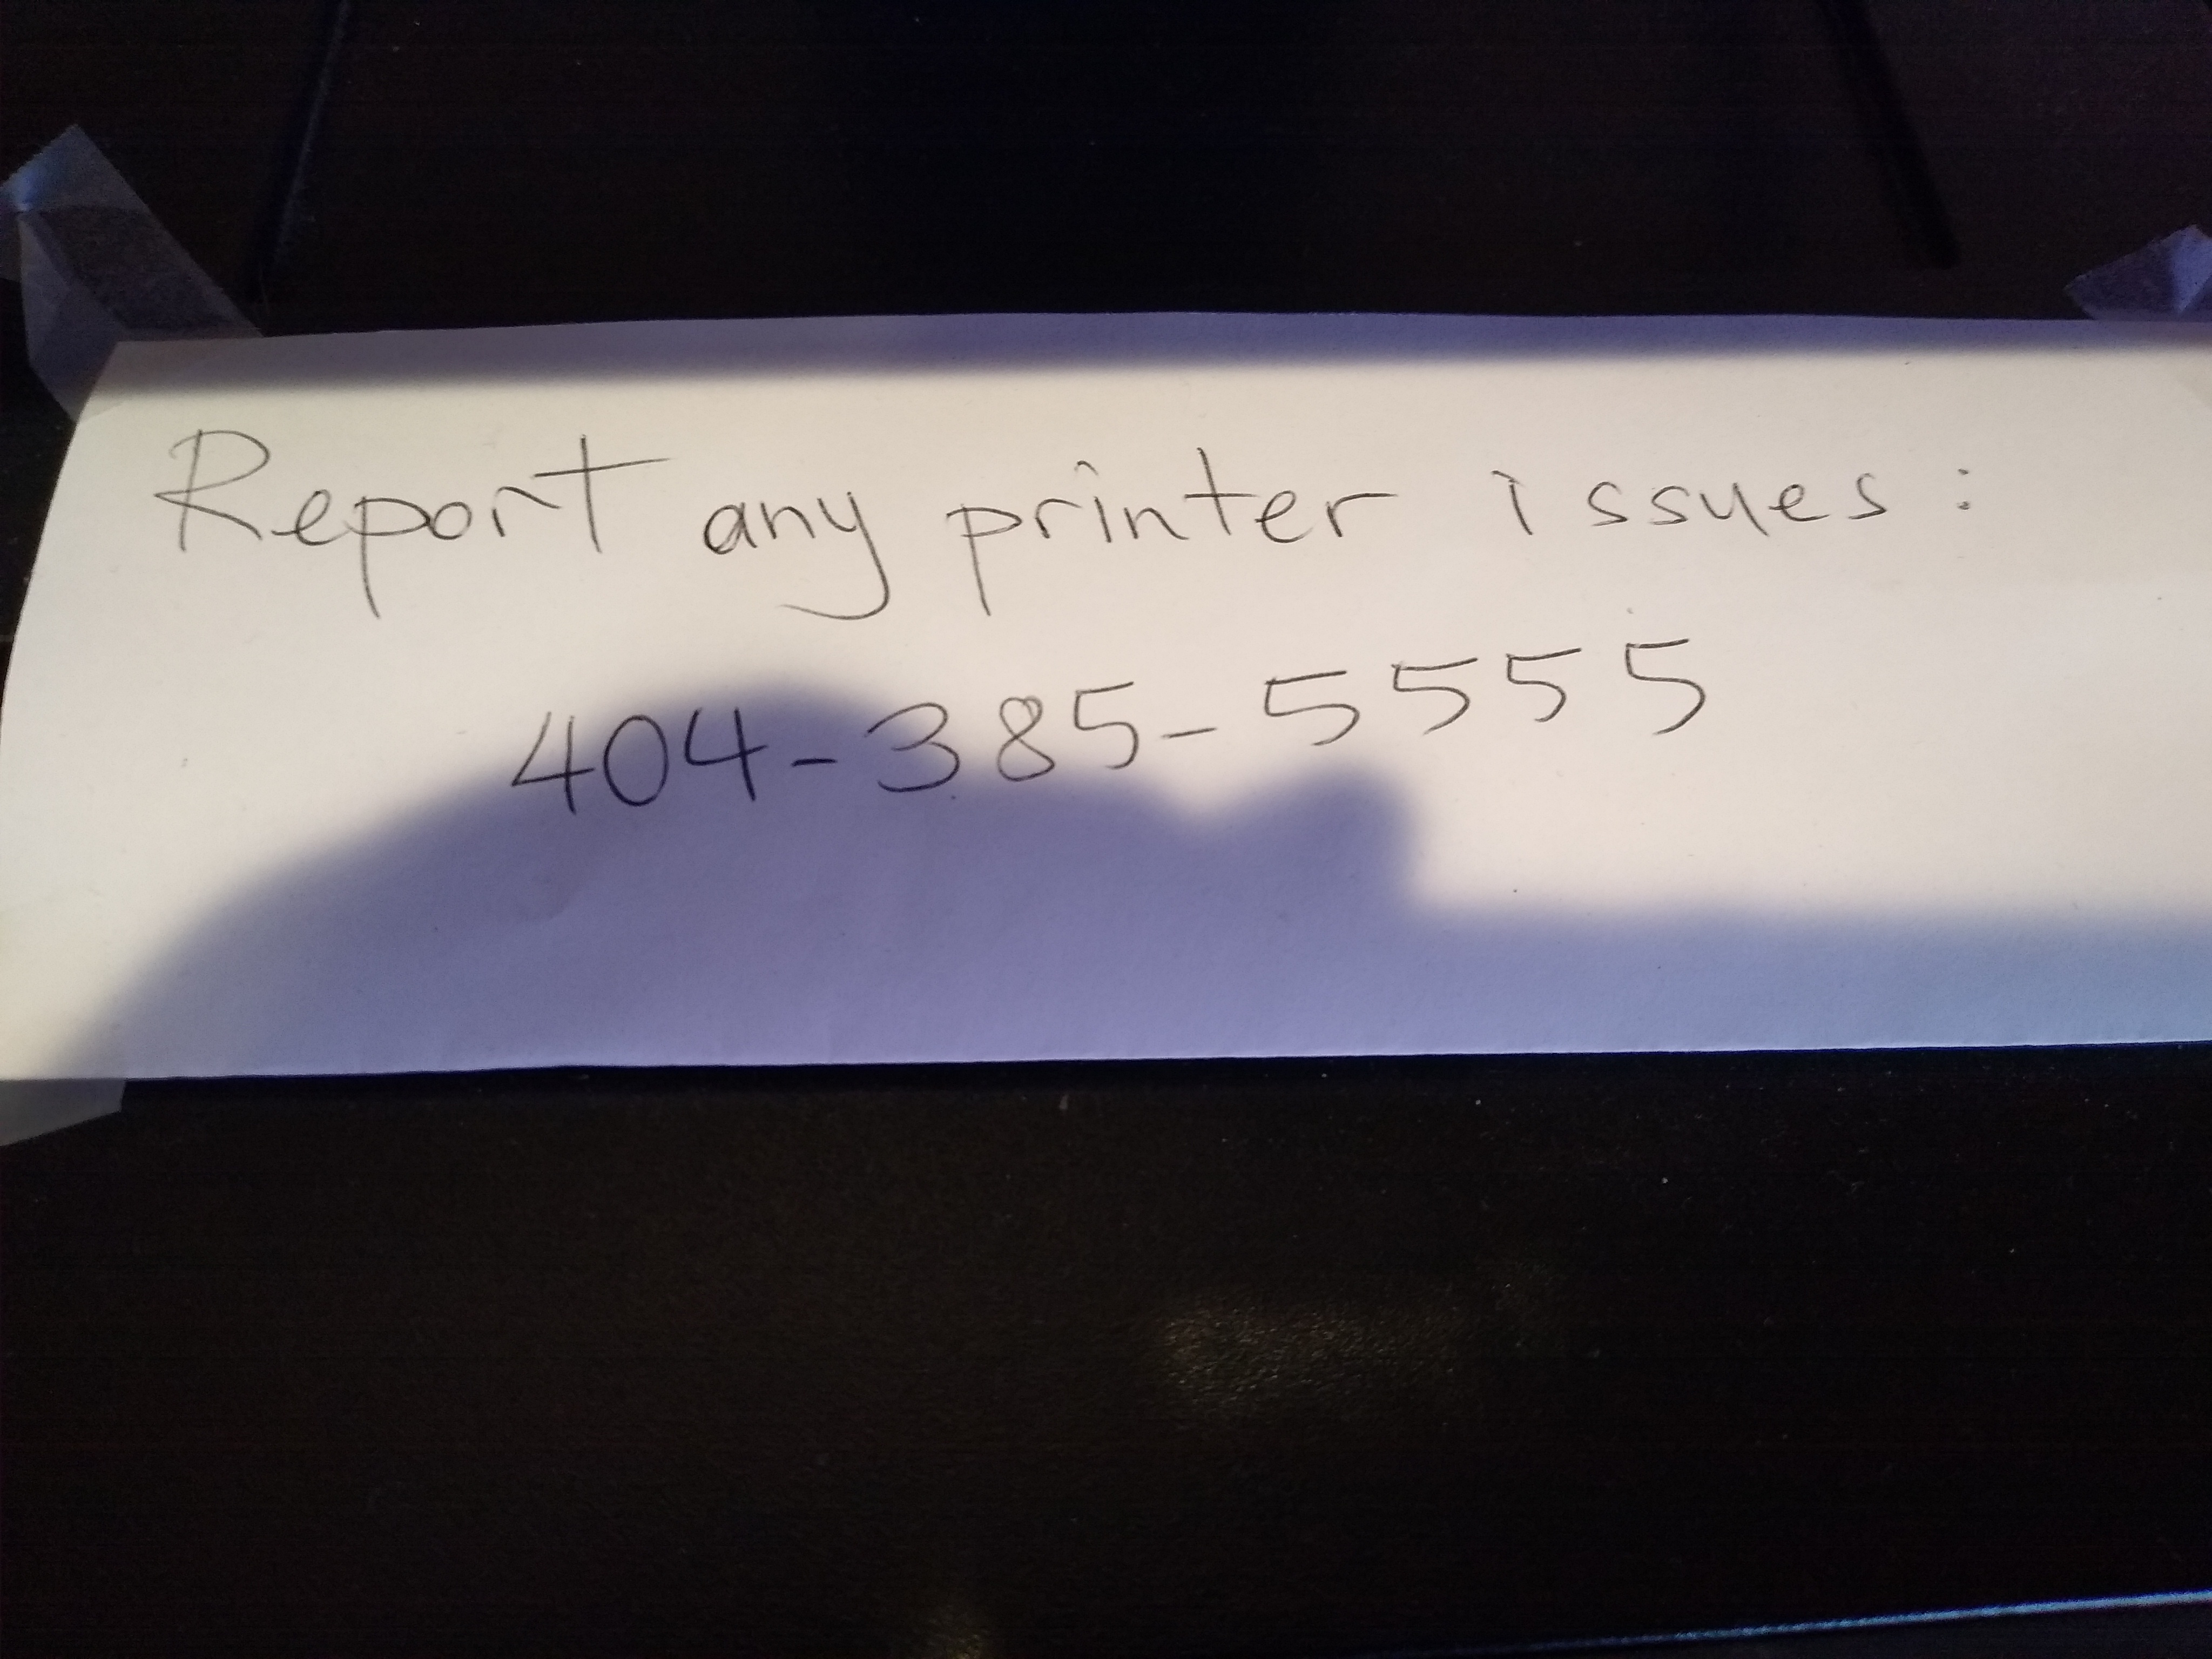 Report any printer issues:
404-385-5555